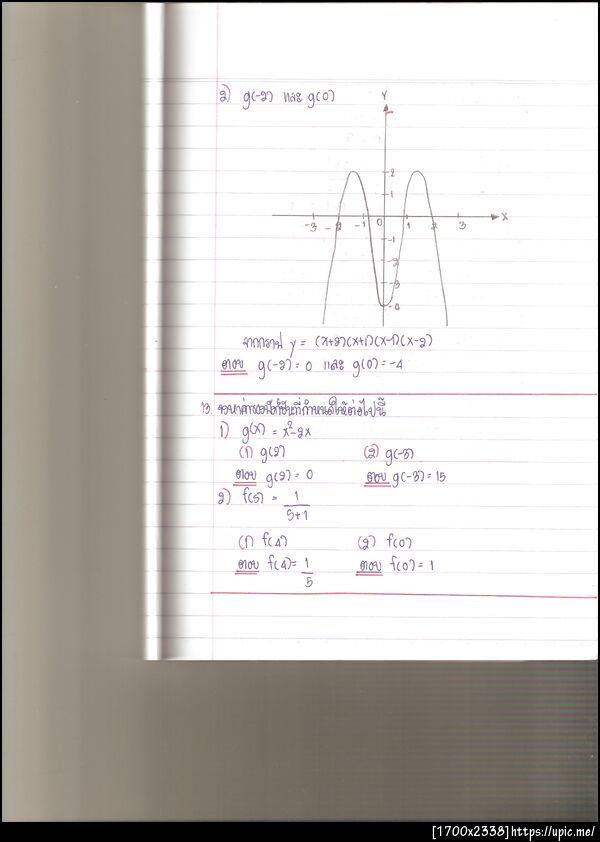 2) g(-2) และ g(0)
Y
2
1
-3 -2 -1 0 1 2 3 X
-1
-2
-3
จากกราฟ y = (x+2)(x+1)(x-1)(x-2)
ตอบ g(-2) = 0 และ g(0) = -4
13. จงหาค่าของฟังก์ชันที่กำหนดให้ต่อไปนี้
1) g(x) = x²-2x
(1) g(2) (2) g(-3)
ตอบ g(2) = 0 ตอบ g(-3) = 15
2) f(s) = 1
s+1
(1) f(4) (2) f(0)
ตอบ f(4) = 1 ตอบ f(0) = 1
5
[1700x2338]https://upic.me/